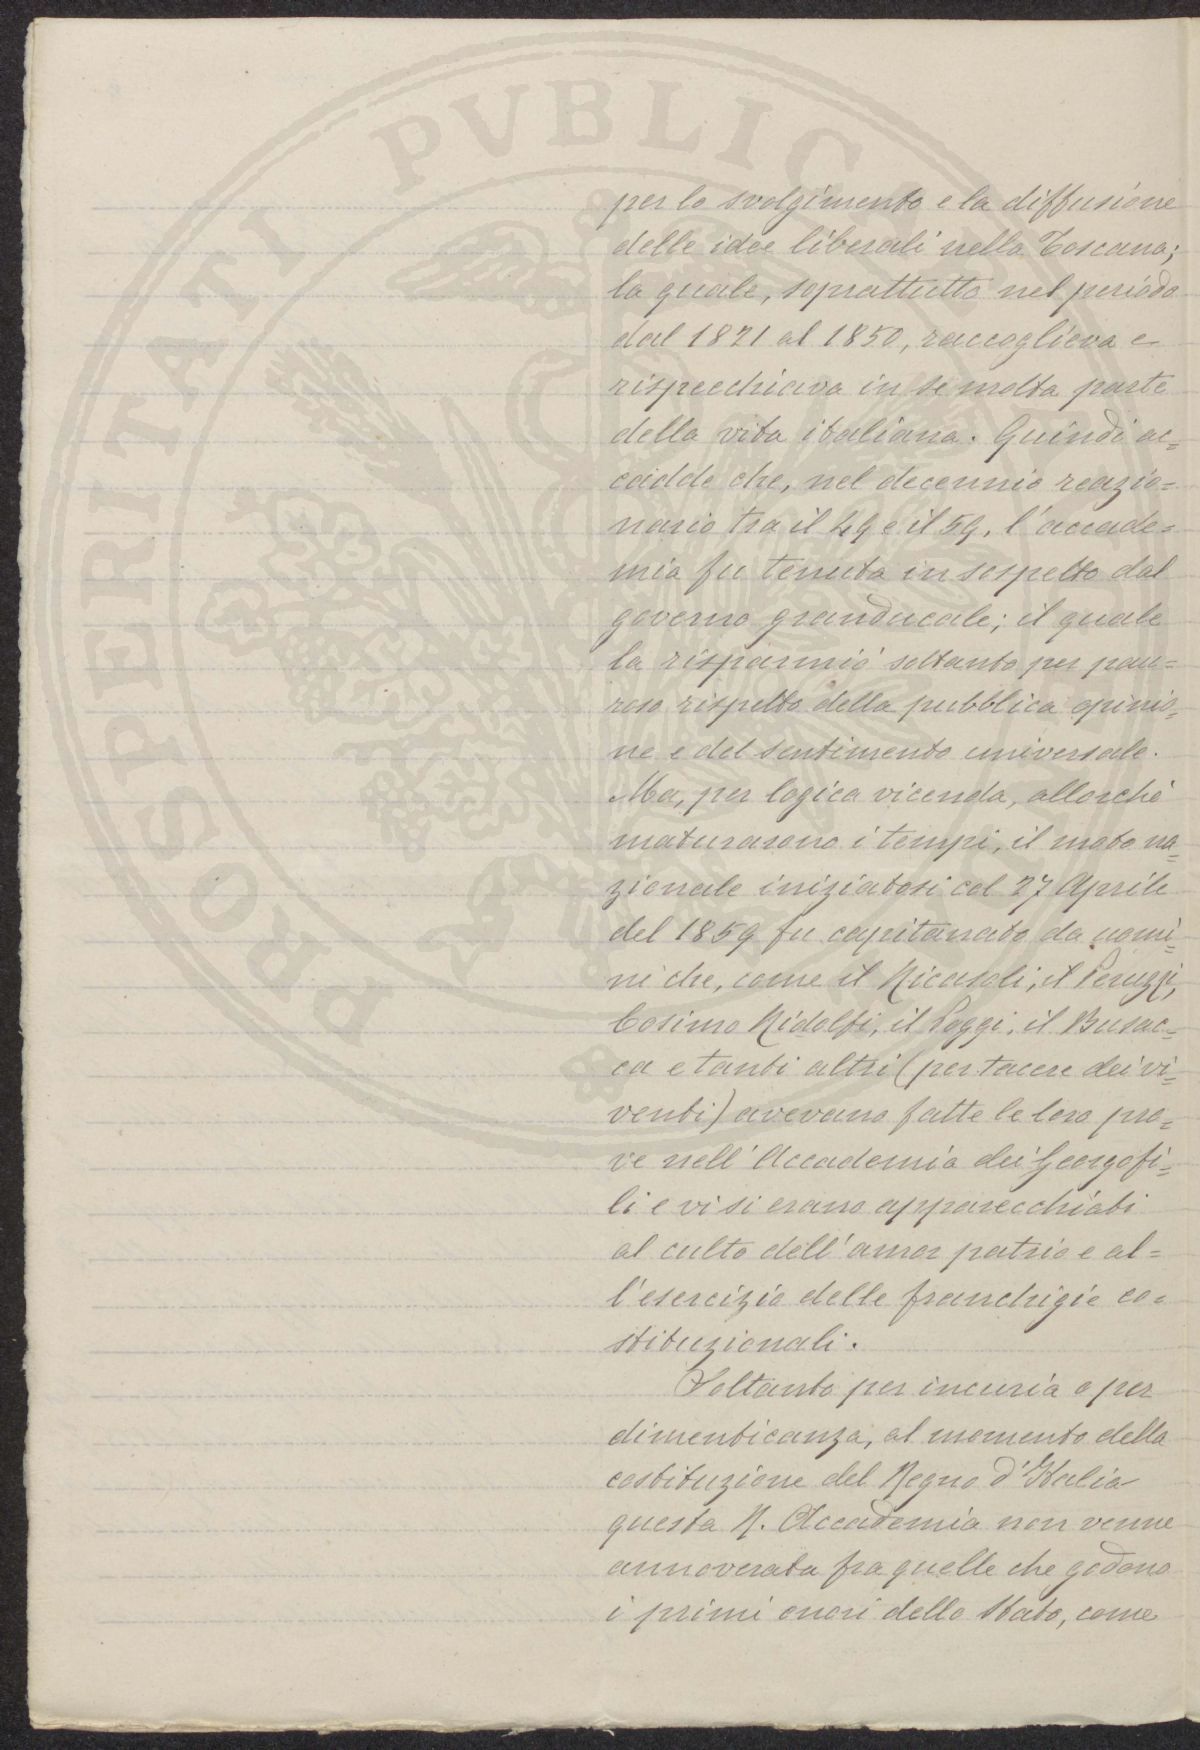 PROSPERITATI PVBLIC
per lo svolgimento e la diffusione
delle idee liberali nella Toscana;
la quale, soprattutto nel periodo
dal 1821 al 1850, raccoglieva e
rispecchiava in sè molta parte
della vita italiana. Quindi ac=
cadde che, nel decennio reazio=
nario tra il 49 e il 59, l'accade=
mia fu tenuta in sospetto dal
governo granducale; il quale
la risparmiò soltanto per pau=
roso rispetto della pubblica opinio=
ne e del sentimento universale.
Ma, per logica vicenda, allorchè
maturarono i tempi, il moto na=
zionale iniziatosi col 27 Aprile
del 1859 fu capitanato da uomi=
ni che, come il Ricasoli, il Peruzzi,
Cosimo Ridolfi, il Poggi, il Busac=
ca e tanti altri (per tacere dei vi=
venti) avevano fatte le loro pro=
ve nell'Accademia dei Georgofi=
li e vi si erano apparecchiati
al culto dell'amor patrio e al=
l'esercizio delle franchigie co=
stituzionali.
Soltanto per incuria o per
dimenticanza, al momento della
costituzione del Regno d'Italia
questa R. Accademia non venne
annoverata fra quelle che godono
i primi onori dello Stato, come